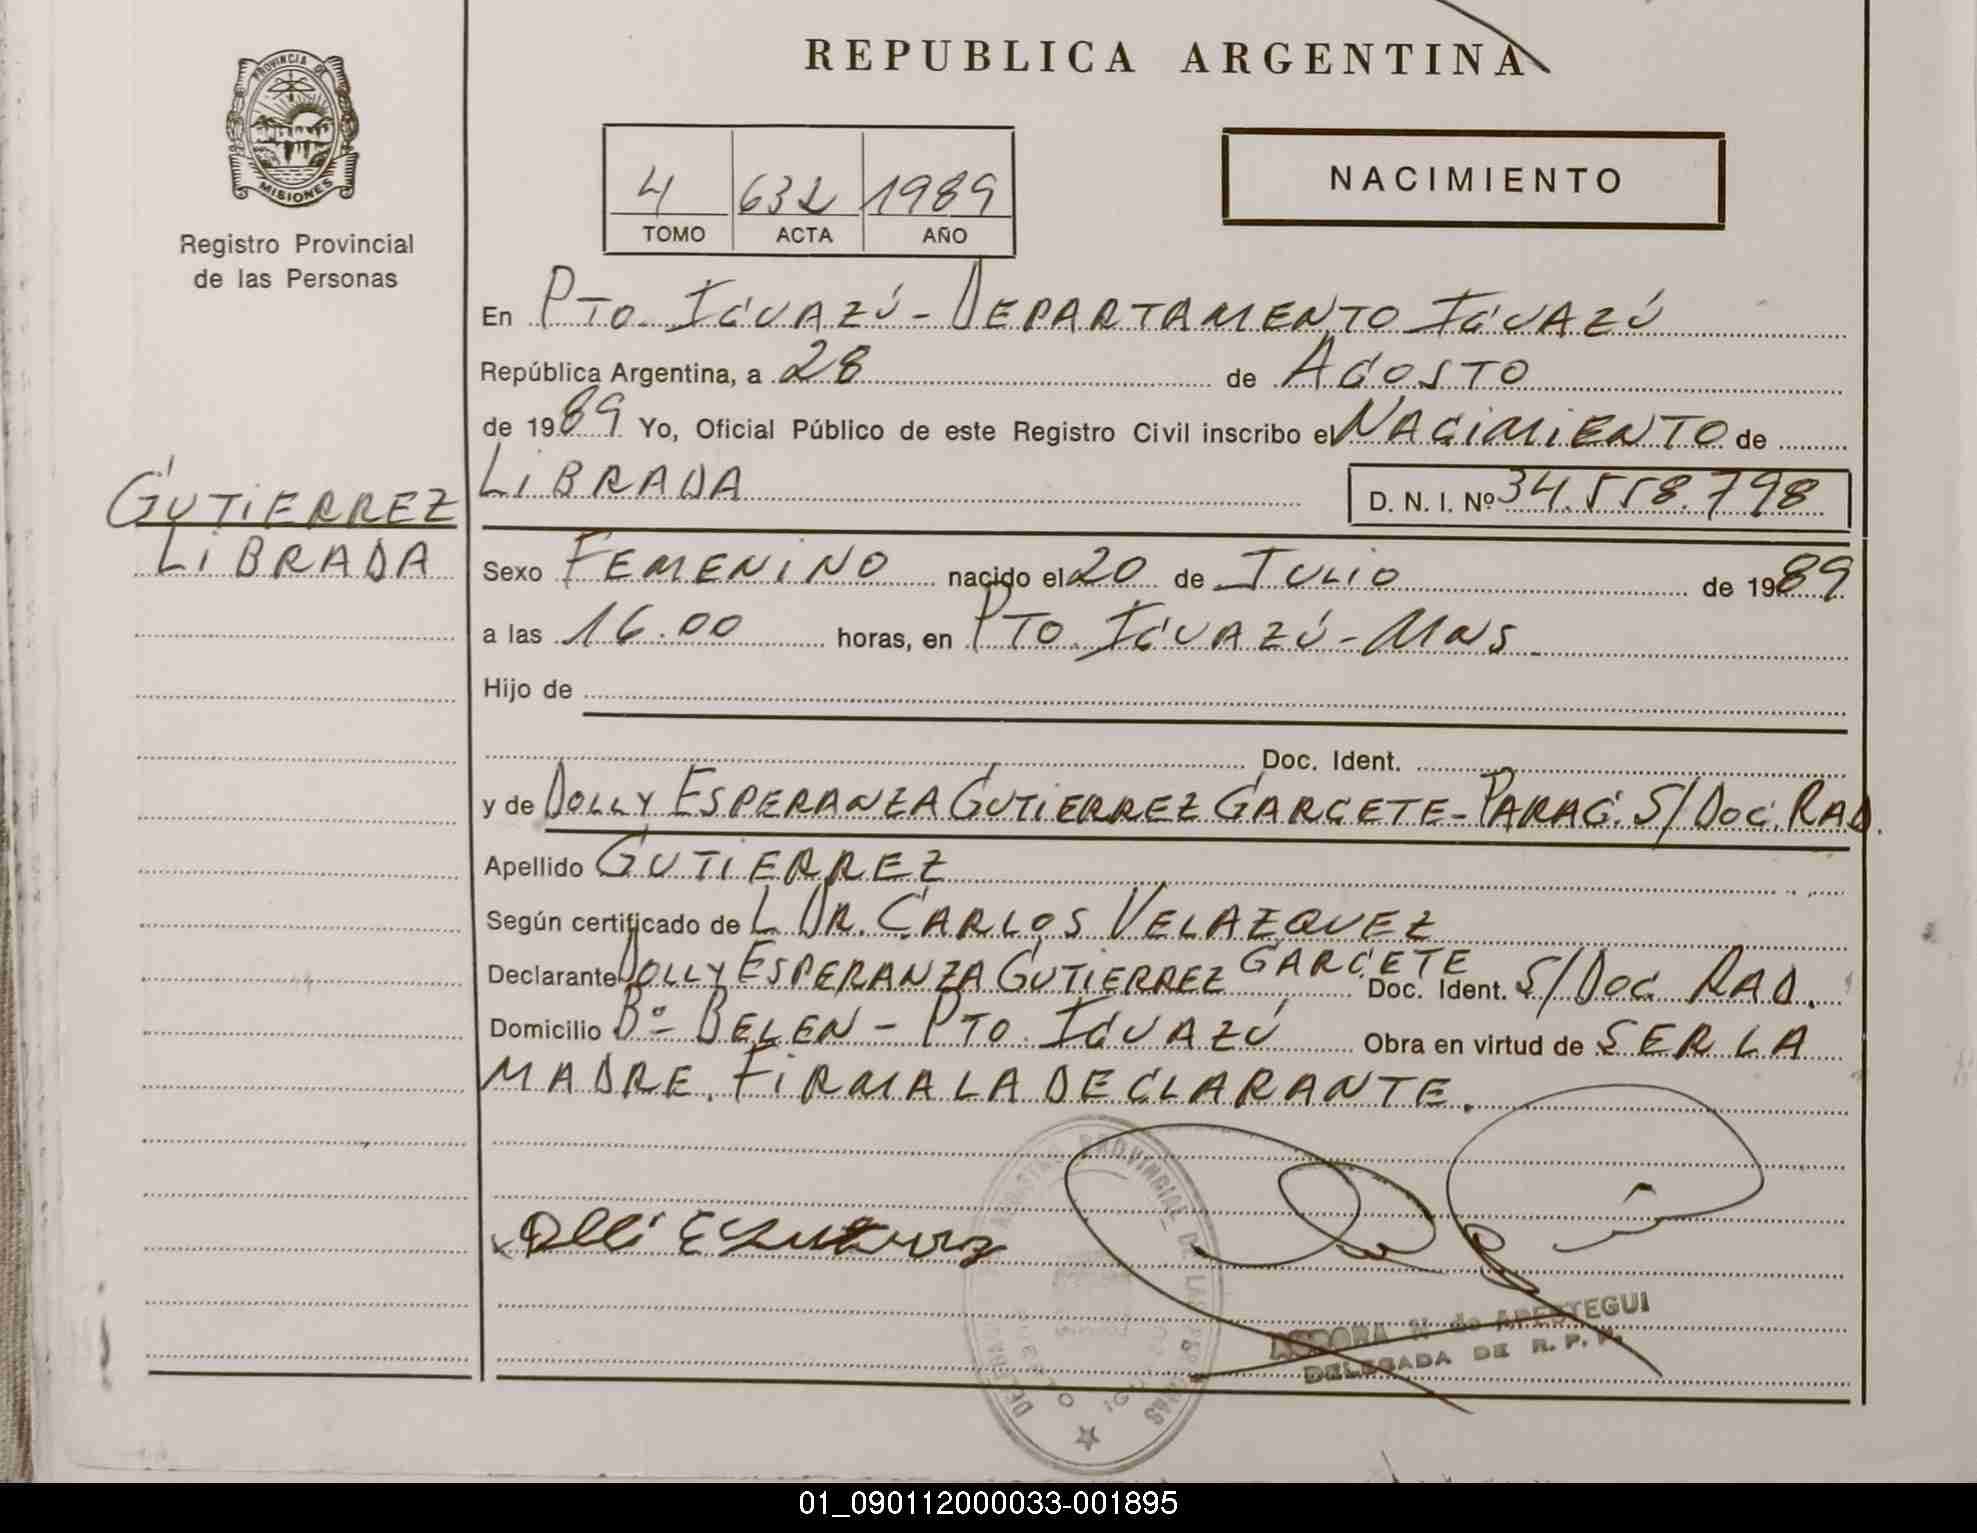 PROVINCIA DE
MISIONES
Registro Provincial
de las Personas
GUTIERREZ
LIBRADA
REPUBLICA ARGENTINA
4 632 1989
TOMO ACTA AÑO
NACIMIENTO
En PTO. IGUAZÚ - DEPARTAMENTO IGUAZÚ
República Argentina, a 28 de AGOSTO
de 1989 Yo, Oficial Público de este Registro Civil inscribo el NACIMIENTO de
LIBRADA D. N. I. Nº 34.558.798
Sexo FEMENINO nacido el 20 de JULIO de 1989
a las 16.00 horas, en PTO. IGUAZÚ - MNS.
Hijo de
Doc. Ident.
y de DOLLY ESPERANZA GUTIERREZ GARCETE - PARAG. S/DOC. RAD.
Apellido GUTIERREZ
Según certificado de L DR. CARLOS VELAZQUEZ
Declarante DOLLY ESPERANZA GUTIERREZ GARCETE Doc. Ident. S/DOC RAD.
Domicilio Bº - BELEN - PTO. IGUAZÚ Obra en virtud de SER LA
MADRE. FIRMA LA DECLARANTE.
PROVINCIAL DE LAS
de APESTEGUI
DELEGADA DE R. P. P.
01_090112000033-001895